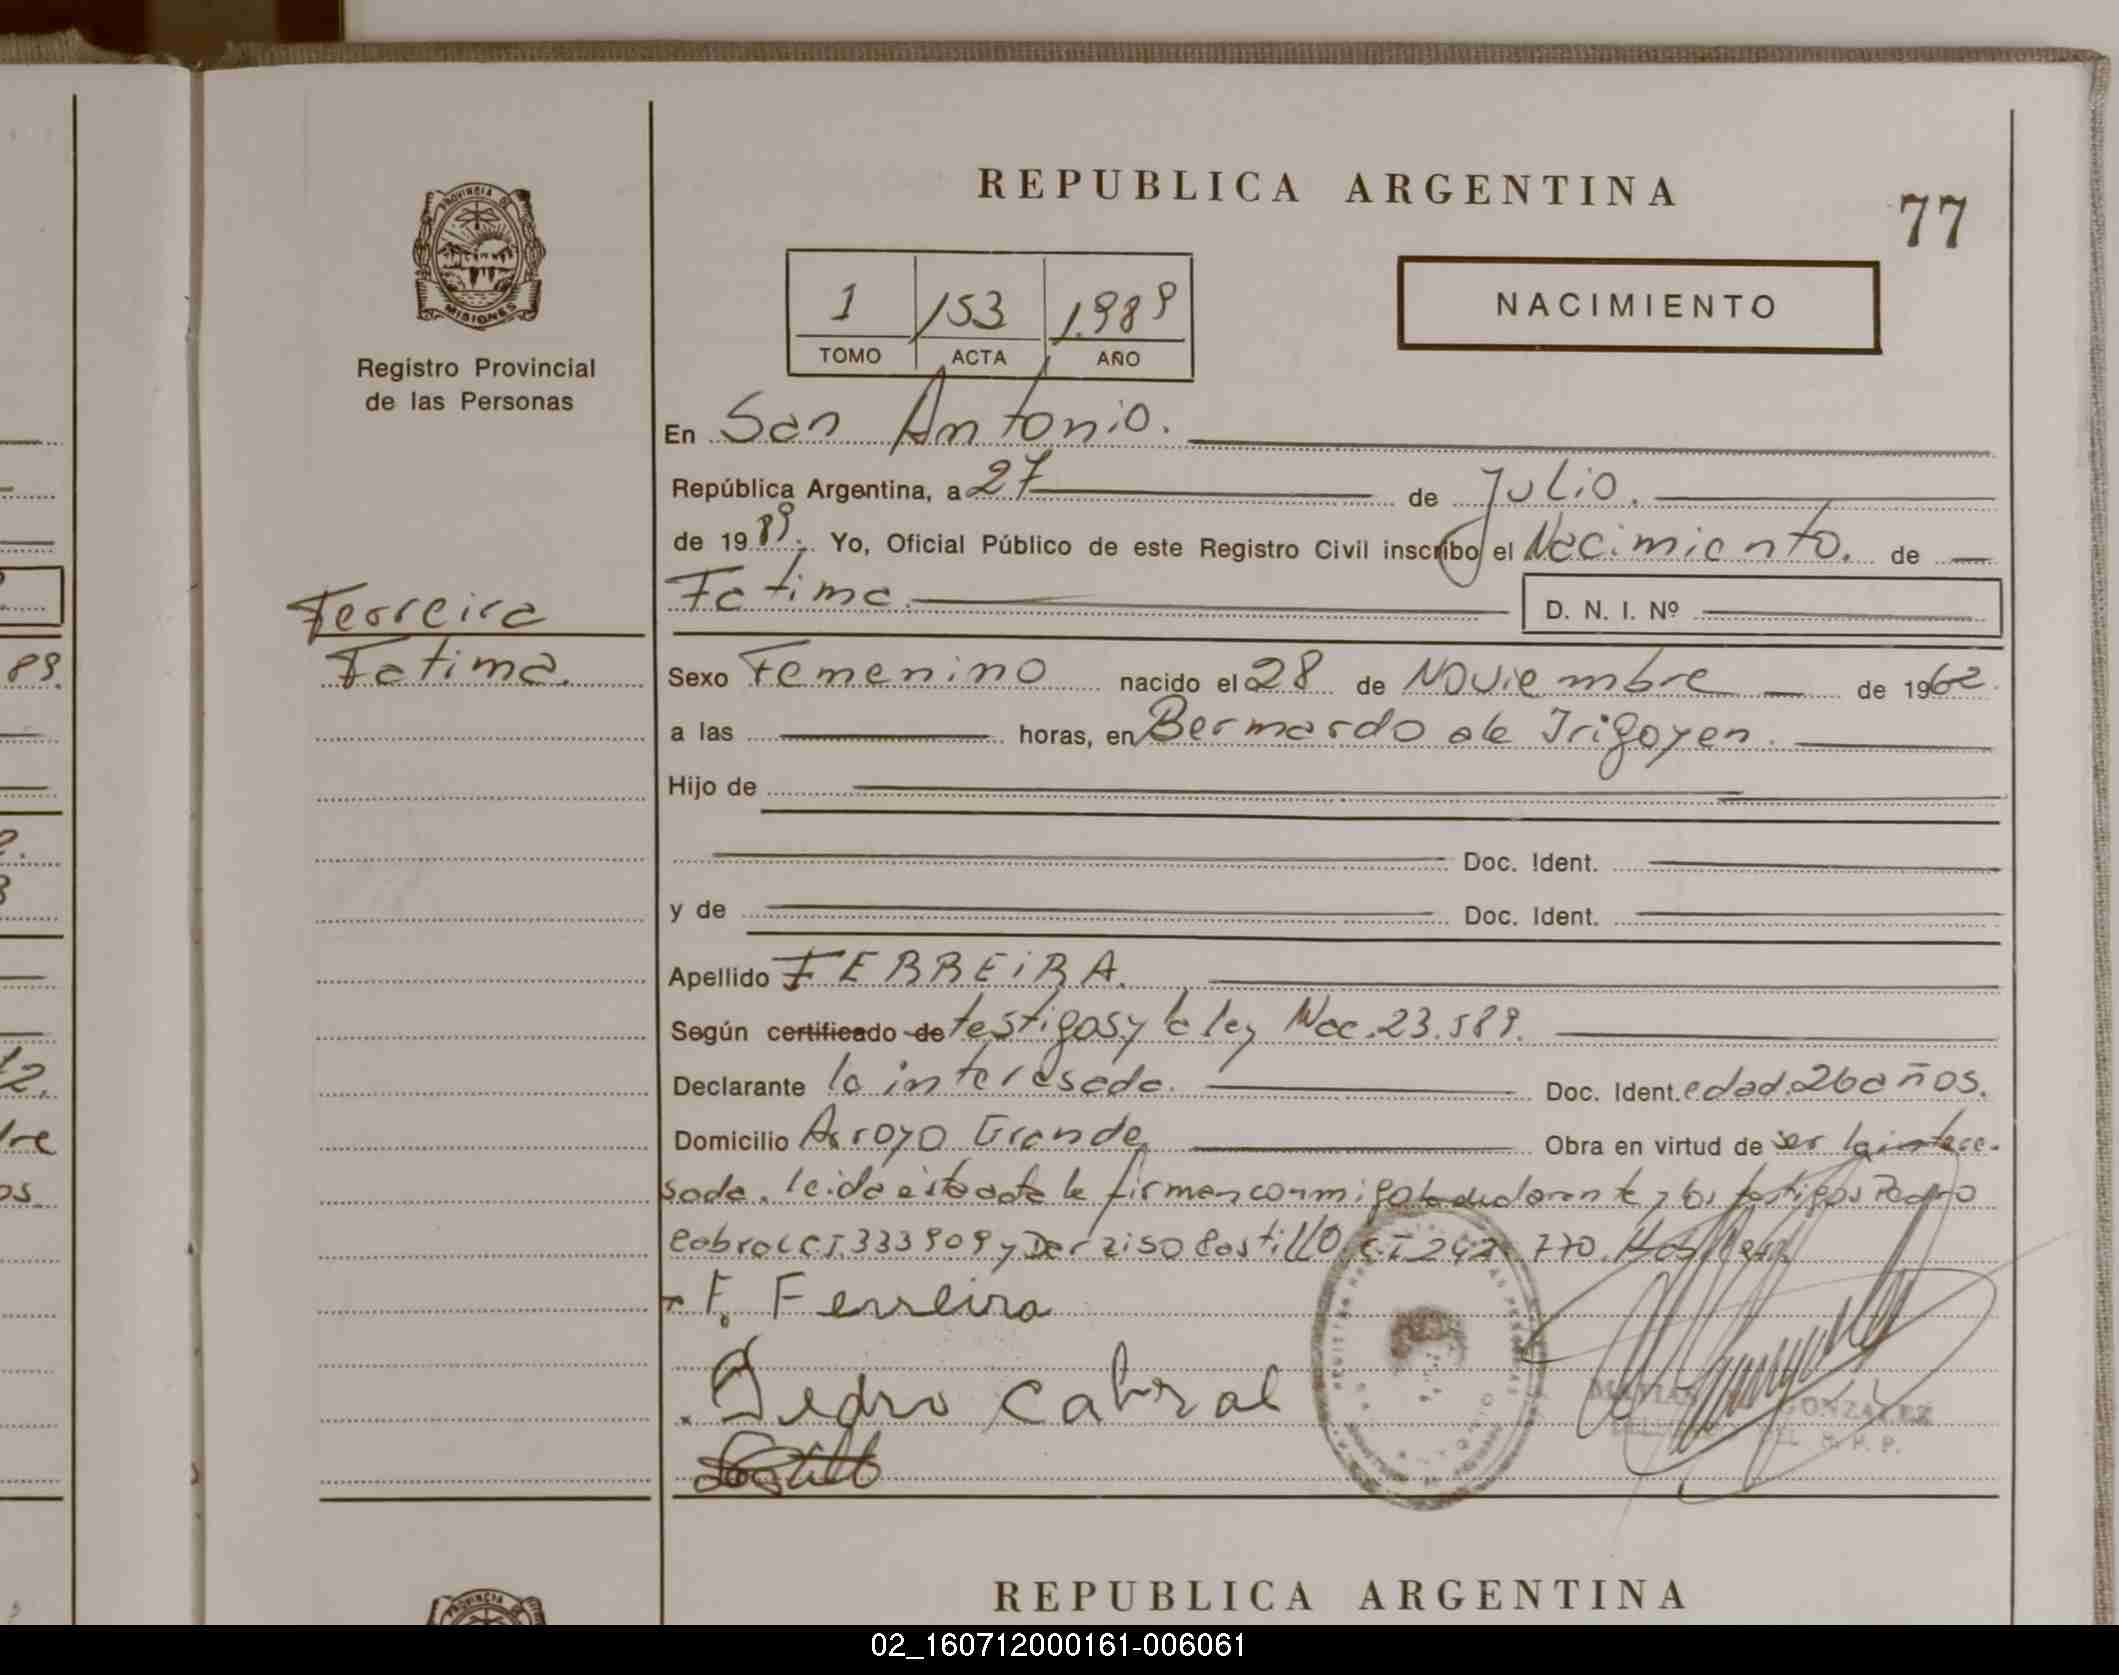 REPUBLICA ARGENTINA
77
PROVINCIA DE
MISIONES
Registro Provincial
de las Personas
1 153 1.989
TOMO ACTA AÑO
NACIMIENTO
En San Antonio.
República Argentina, a 27 de Julio.
de 1989. Yo, Oficial Público de este Registro Civil inscribo el Nacimiento. de
Fatima. D. N. I. Nº
Ferreira
Fatima.
Sexo Femenino nacido el 28 de Noviembre de 1962.
a las horas, en Bernardo de Irigoyen.
Hijo de
Doc. Ident.
y de Doc. Ident.
Apellido FERREiRA.
Según certificado de testigos y la ley Nac. 23.589.
Declarante la interesada. Doc. Ident. edad. 26 años.
Domicilio Arroyo Grande Obra en virtud de ser la intere-
sada. leida esta acta la firman conmigo la declarante y los testigos Pedro
Cabral C.I. 333909 y Castillo C.I 242.770.
F. Ferreira
Pedro Cabral
Castillo
MATIAS GONZALEZ
DEL R. P. P.
REPUBLICA ARGENTINA
PROVINCIA DE
89.
02_160712000161-006061